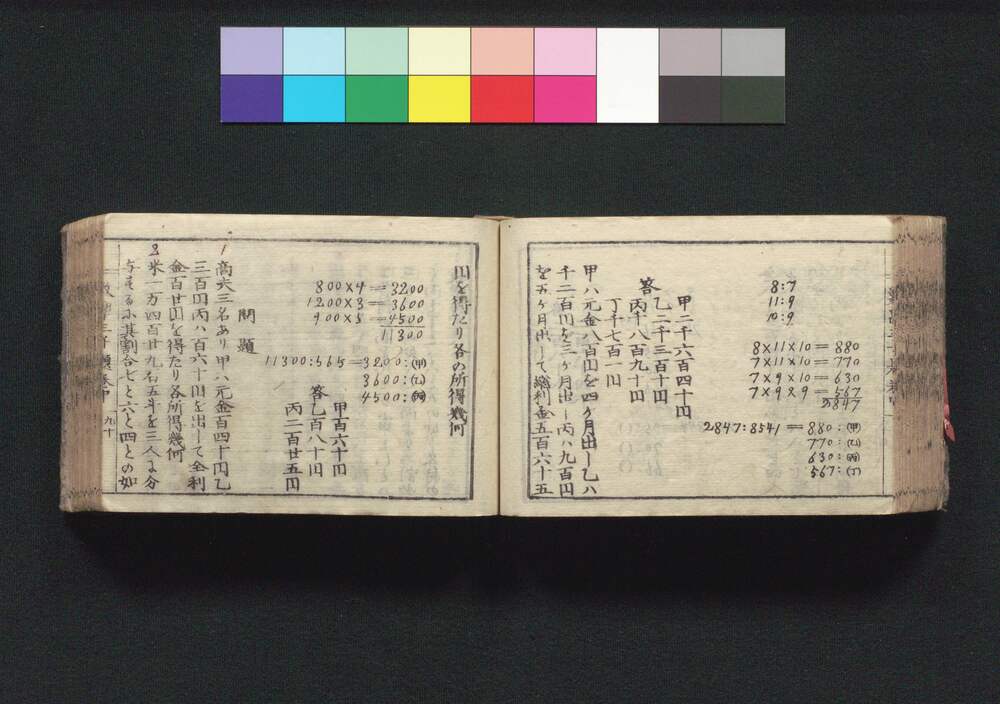 8:7
11:9
10:9
8×11×10=880
7×11×10=770
7×9×10=630
7×9×9=567
2847
2847:8541=880:(甲)
770:(乙)
630:(丙)
567:(丁)
甲二千六百四十円
答乙二千三百十円
丙千八百九十円
丁千七百一円
甲ハ元金八百円を四ヶ月出し乙ハ
千二百円を三ヶ月出し丙ハ九百円
を五ヶ月出して總利金五百六十五
円を得たり各の所得幾何
800×4=3200
1200×3=3600
900×5=4500
11300
11300:565=3200:(甲)
3600:(乙)
4500:(丙)
甲百六十円
答乙百八十円
丙二百廿五円
問題
1 商人三名あり甲ハ元金百四十円乙
三百円丙ハ百六十円を出して全利
金百廿円を得たり各所得幾何
2 米一万四百廿九石五斗を三人に分
与するに其割合七と六と四との如
九十